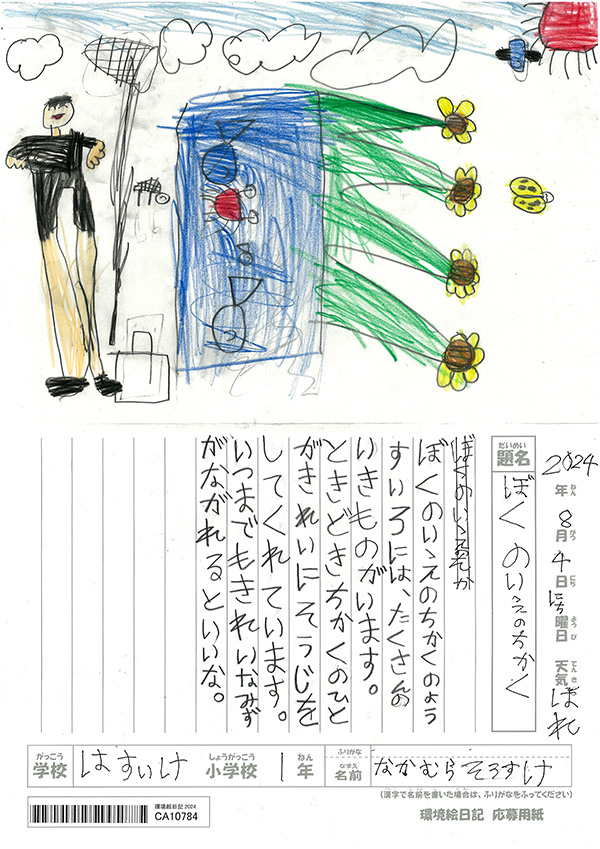 2024年ねん8月がつ4日にちにち曜日ようび天気てんきはれ
だいめい
題名
ぼくのいえのちかく
ぼくのいえのちかくのよう
すいろには、たくさんの
いきものがいます。
ときどきちかくのひと
がきれいにそうじを
してくれています。
いつまでもきれいなみず
がながれるといいな。
がっこう しょうがっこう ねん ふりがな なまえ
学校 はすいけ 小学校 1年 名前 なかむらそうすけ
(漢字で名前を書いた場合は、ふりがなをふってください)
環境絵日記 応募用紙
環境絵日記 2024
CA10784